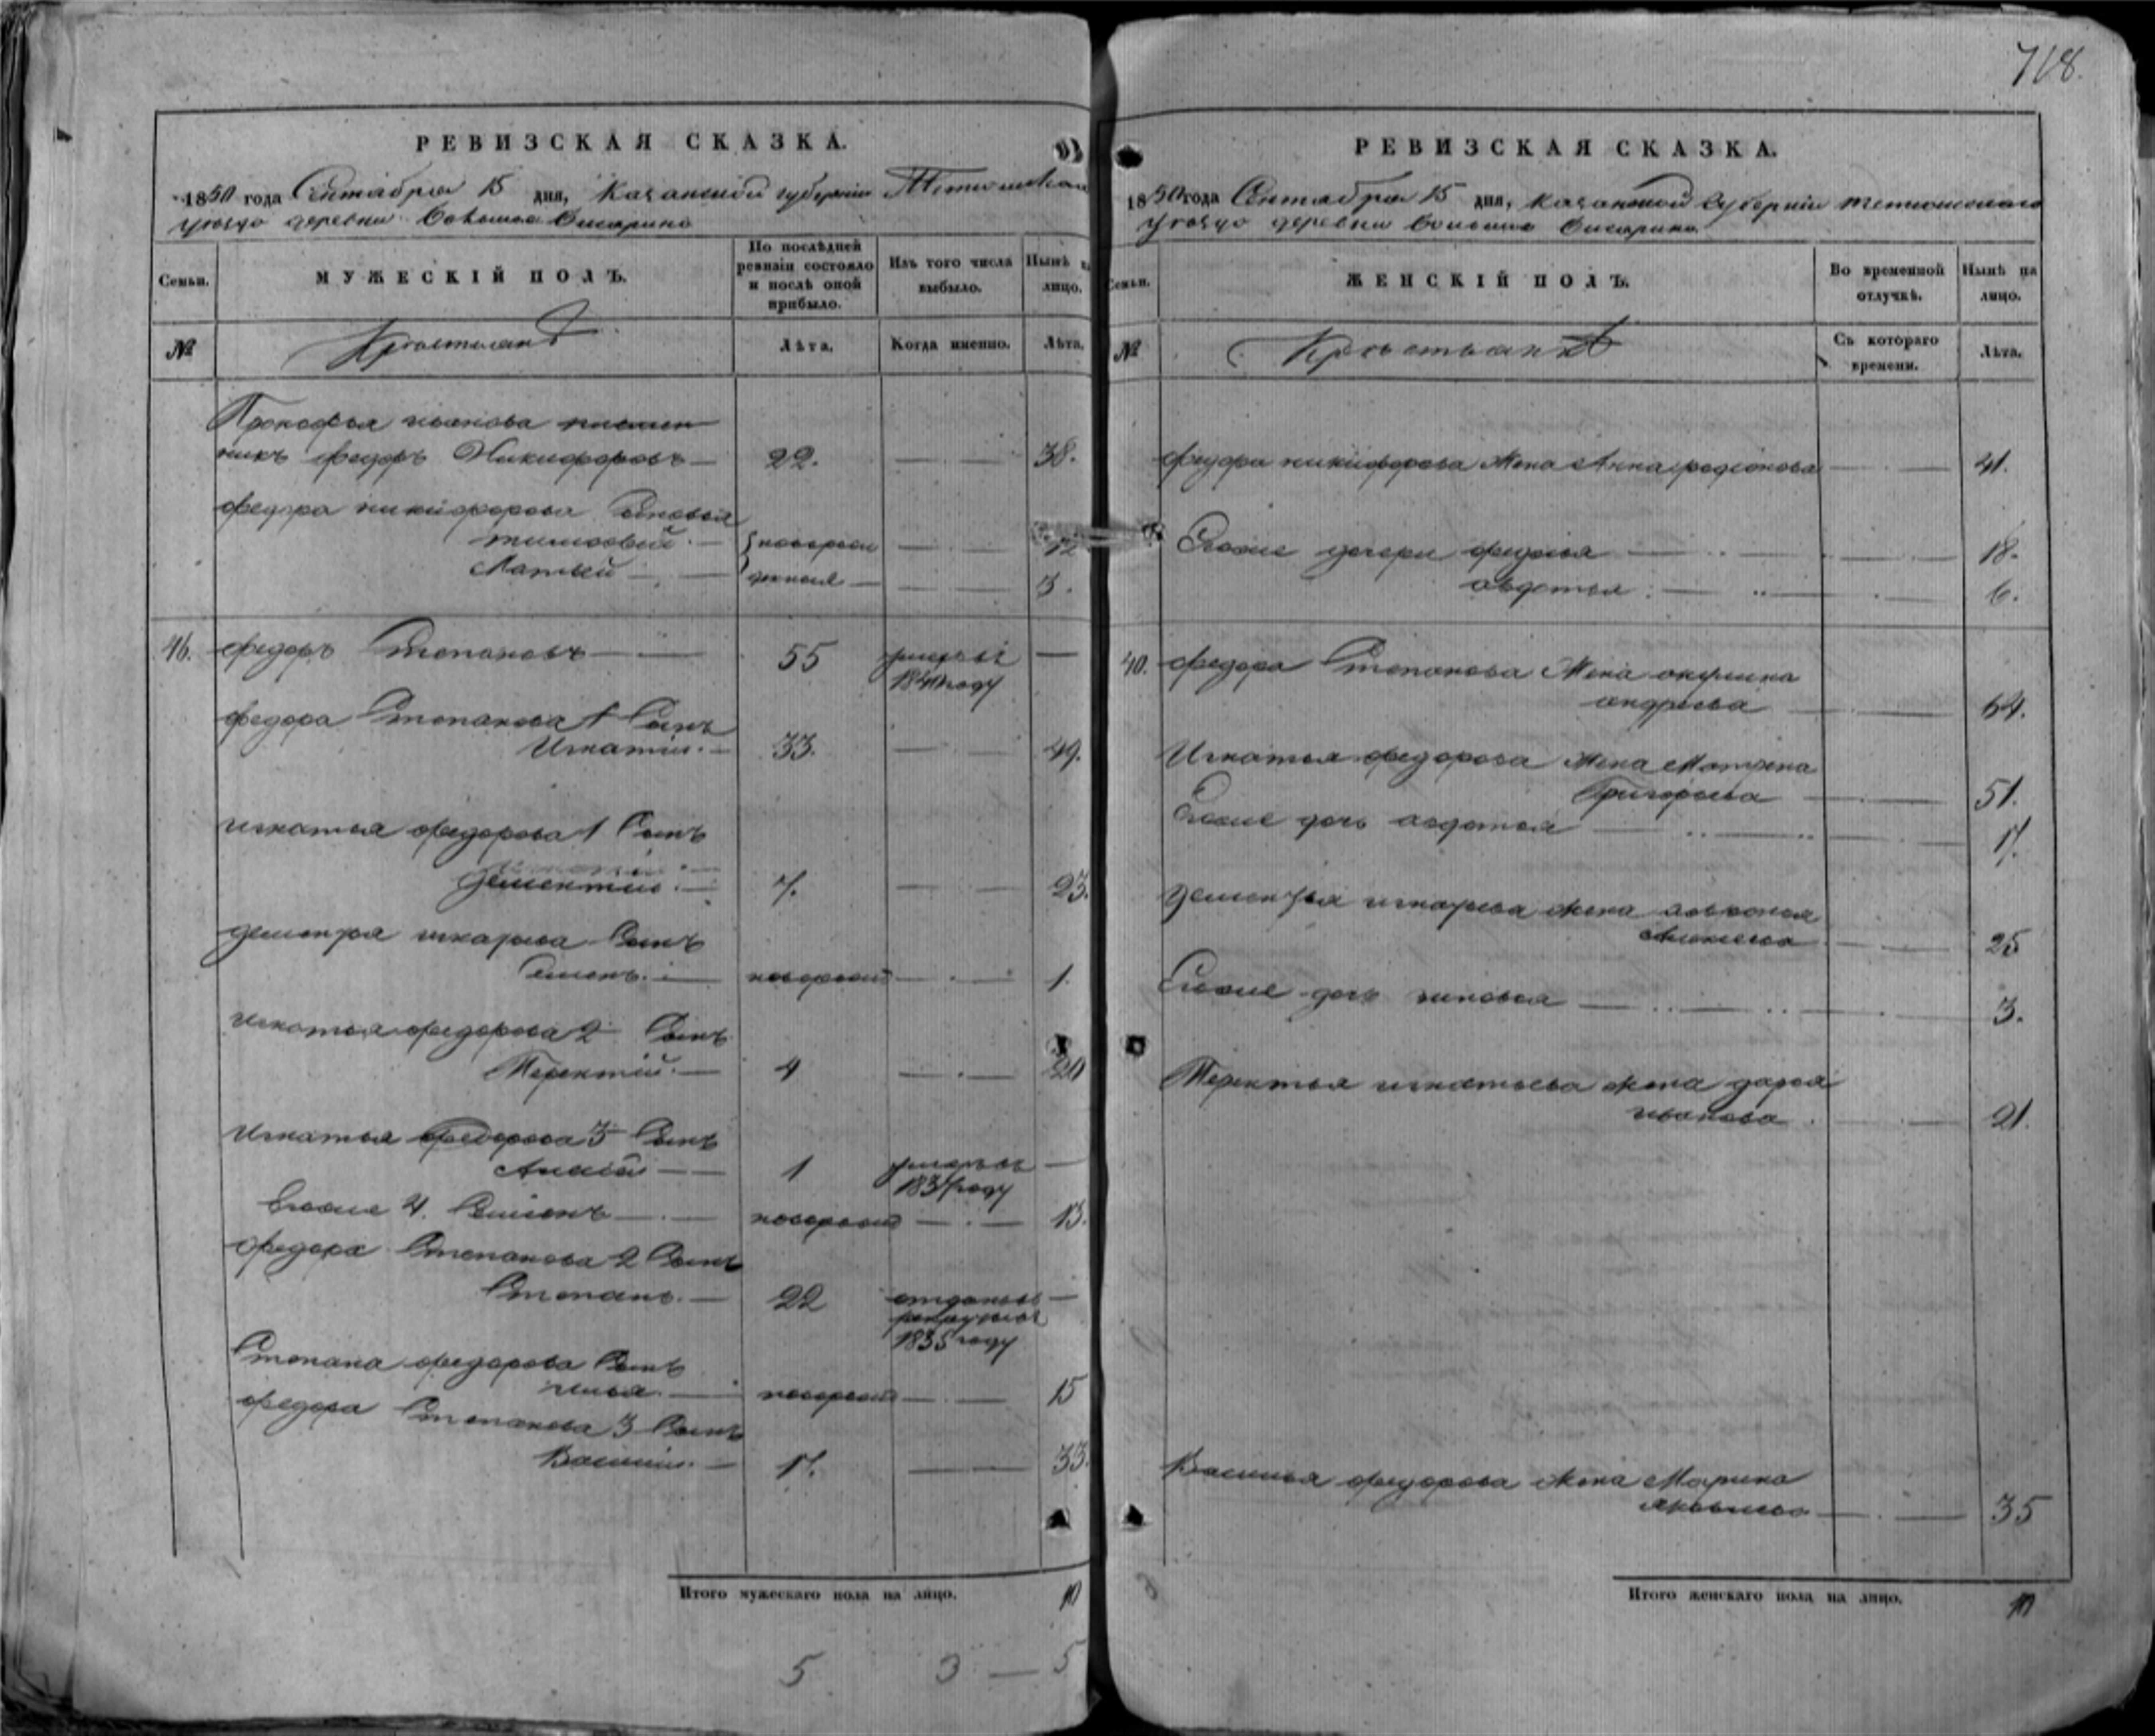 718.
РЕВИЗСКАЯ СКАЗКА.
1850 года Сентября 15 дня, Казанской губернии Тетюшскаго
уезда деревни
Семьи.
МУЖЕСКІЙ ПОЛЪ.
По послѣдней ревизіи состояло и послѣ оной прибыло.
Изъ того числа выбыло.
Нынѣ на лицо.
№
Крестьянъ
Лѣта.
Когда именно.
Лѣта.
Прокофья иванова племян
никъ федоръ Никифоровъ 22. 38.
федора никифорова Сыновья
тимофей новорож 12
Матвей денныя 3.
46. федоръ Степановъ 55 умеръ
году
федора Степанова 1 Сынъ
Игнатій. 33. 49.
игнатья федорова 1 Сынъ
дементій. 7. 23.
дементья игнатьева Сынъ
Семенъ. новорож 1.
игнатья федорова 2 Сынъ
Терентій. 4 20
Игнатья федорова 3 Сынъ
1 умеръ
году
Егоже 4. Семенъ новорож 13.
федора Степанова 2 Сынъ
Степанъ. 22 отданъ въ
рекруты
1835 году
Степана федорова Сынъ
илья. новорож 15
федора Степанова 3 Сынъ
Василій. 17. 33.
Итого мужескаго пола на лицо. 10
5 3 — 5
РЕВИЗСКАЯ СКАЗКА.
1850 года Сентября 15 дня, Казанской Губерніи тетюшскаго
уезда деревни
Семьи.
ЖЕНСКІЙ ПОЛЪ.
Во временной отлучкѣ.
Нынѣ на лицо.
№
Крестьянъ
Съ котораго времени.
Лѣта.
федора никифорова Жена Анна родіонова 41.
Егоже дочери федосья 18.
авдотья 6.
федора Степанова Жена акулина
андреева 64.
Игнатья федорова жена Матрена
Григорьева 51.
Егоже дочь авдотья 17.
дементья игнатьева жена
25
Егоже дочь зиновья 3.
Терентья игнатьева жена дарья
иванова 21.
Василья федорова жена Марина
яковлева 35
Итого женскаго пола на лицо. 10